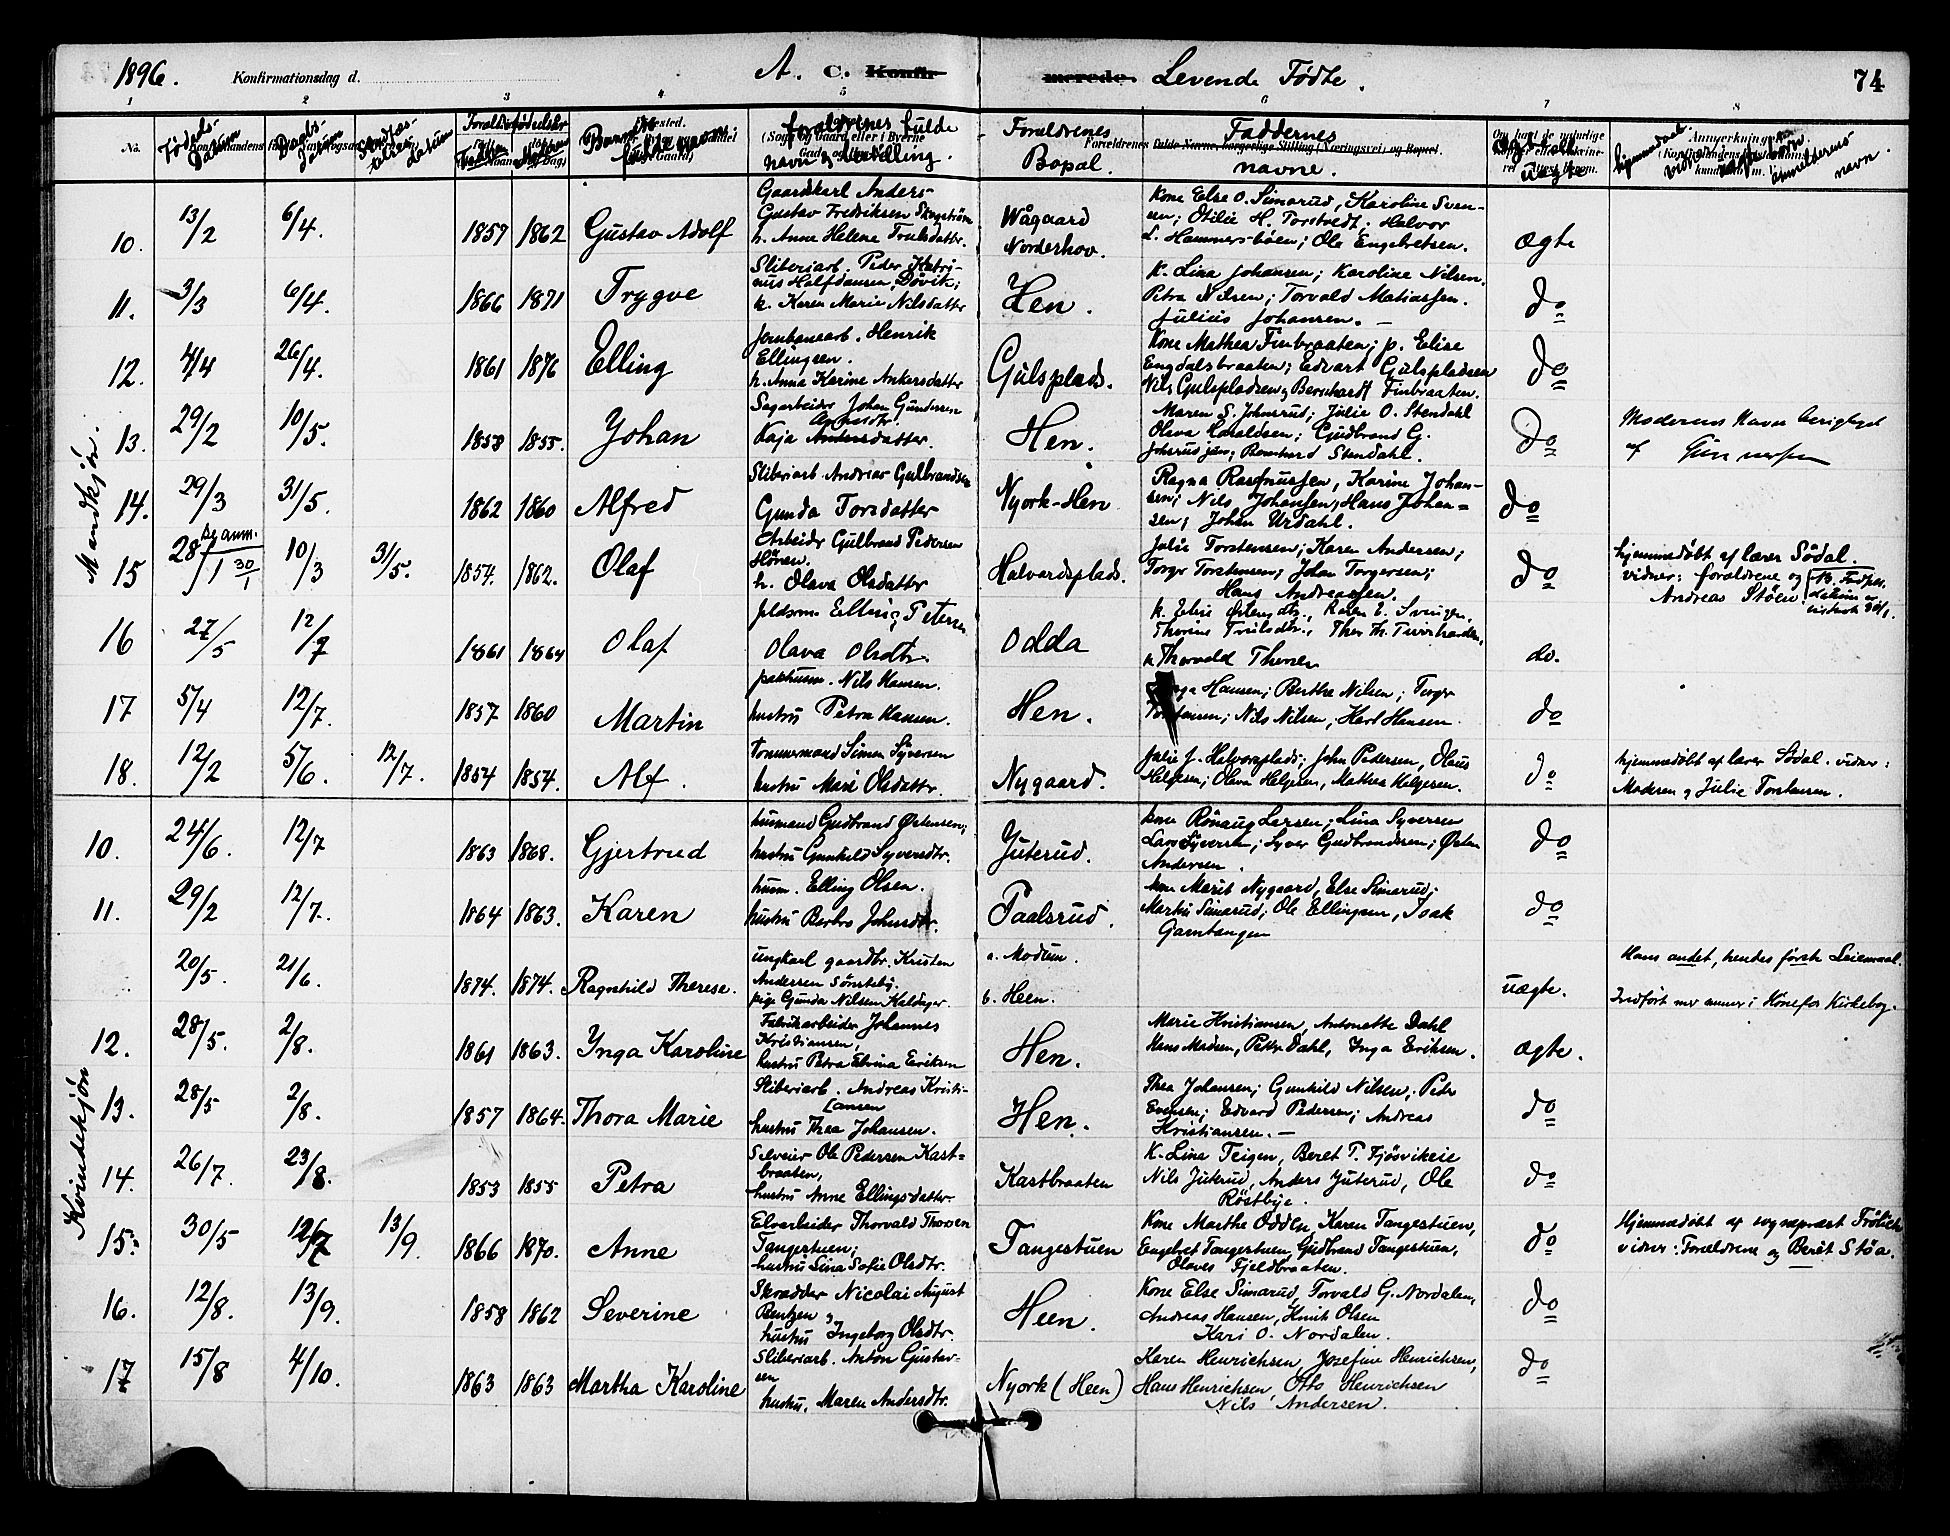 1896. Konfirmationsdag d. A. C. Konfir merede. Levende Födte. 74
1 2 3 4 5 6 7 8
No. Födselsdatum Daabsdatum Stadfæstelsesdatum Forældres födselsår faderen moderen Barnets fulde navn forældrenes fulde navn og stilling. Forældrenes Bopal. Faddernes navne. Ægte eller uægte
Mandkjön.
10. 13/2 6/4. 1857 1862 Gustav Adolf
Gaardkarl Anders
Gustav Fredriksen Skogström
h. Anne Helene Trulsdattr.
Wågaard
Norderhov.
Kone Else O. Simarud, Karoline Sven-
sen; Otilie H. Torstvedt; Halvor
L. Hammersböen; Ole Engebretsen.
ægte
11. 3/3 6/4. 1866 1871 Trygve
Sliberiarb. Peder Katri-
nus Halfdansen Dövik;
h. Karen Marie Nilsdattr
Hen.
K. Lina Johansen; Karoline Nilsen.
Petra Nilsen; Torvald Matiassen.
Julius Johansen. —
do
12. 4/4 26/4. 1861 1876 Elling
Jernbanearb. Henrik
Ellingsen.
h. Anna Karine Ankersdatter
Gulsplads.
Kone Mathea Finbraaten; p. Elise
Engdalsbraaten; Edvart Gulspladsen
Nils Gulspladsen; Bernhardt Finbraaten.
do
13. 29/2 10/5. 1858 1855. Johan
Sagarbeider Johan Gundersen
Kaja Andersdatter.
Hen.
Maren S. Johnsrud; Julie O. Stendahl
Olava Haraldsen; Gudbrand G.
Johnsrud jun; Bernhard Stendahl.
do
Moderens Navn berigtiget
af Gunnersen
14. 29/3 31/5. 1862 1860 Alfred
Sliberiarb Andreas Gulbrandsen
Gunda Torsdatter
Nyork-Hen
Ragna Rasmussen, Karine Johan-
sen; Nils Johansen; Hans Johan-
sen; Johan Urdahl.
do
15 28/1 se anm. 30/1 10/3 31/5. 1854. 1862. Olaf
Arbeidr Gulbrand Pedersen
Hören.
h. Olava Olsdattr
Halvardsplads.
Julie Torstensen; Karen Andersen;
Torgr Torstensen; Johan Torgersen;
Hans Andreassen.
do
hjemmedöbt af lærer Södal.
vidner: forældrene og
Andreas Stöen.
16 27/5 12/7 1861 1864 Olaf
Elling Petersen
Olava Olsdtr.
Odda
do.
17 5/4 12/7. 1857 1860 Martin
Nils Hansen.
hustru Petra Hansen.
Hen.
Hansen; Berthe Nilsen; Torgr
Torstensen; Nils Nilsen; Karl Hansen
do
18. 12/2 5/6. 12/7. 1854 1854. Alf.
Tömmermand Simen Syversen
hustru Mari Olsdattr.
Nygaard.
Julie J. Halvorsplads; John Pedersen, Olaus
Helgesen; Olava Helgesen, Mathea Helgesen.
do
hjemmedöbt af lærer Södal. vidner:
Moderen og Julie Torstensen.
Kvindekjön
10. 24/6. 12/7 1863 1868. Gjertrud
husmand Gudbrand Östensen;
hustru Gunhild Syversdtr.
Juterud.
kone Rönaug Larsen; Lina Syversen
Lars Syversen; Syver Gudbrandsen; Östen
Andersen.
do
11. 29/2 12/7. 1864 1863. Karen
husm. Elling Olsen.
hustru Berbro Johnsdtr.
Paalsrud.
kone Marit Nygaard, Else Simarud;
Marthe Simarud; Ole Ellingsen, Isak
Garntangen
do
20/5. 21/6. 1874. 1874. Ragnhild Therese.
ungkarl gaardbr. Kristen
Andersen Sönsteby.
pige Gunda Nilsen Kaldager.
a. Modum.
b. Heen.
uægte.
Hans andet, hendes förste Leiemaal.
Indfört med numer i Hönefos Kirkebog.
12. 28/5. 2/8. 1861 1863. Ynga Karoline
Fabrikarbeider Johannes
Kristiansen,
hustru Petra Elvina Eriksen
Hen.
Marie Kristiansen, Antonette Dahl
Hans Madsen, Petter Dahl, Ynga Eriksen.
ægte.
13. 28/5 2/8. 1857 1864. Thora Marie
Sliberiarb. Andreas Kristi-
ansen
hustru Thea Johansen.
Hen.
Thea Johansen; Gunhild Nilsen; Peder
Evensen; Edvard Pedersen; Andreas
Kristiansen. —
do
14. 26/7. 23/8. 1853 1855 Petra
Selveier Ole Pedersen Kast-
braaten,
hustru Anne Ellingsdatter
Kastbraaten
K. Lina Teigen, Beret T. Fjösvikeie
Nils Juterud, Anders Juterud, Ole
Röstbye.
do
15. 30/5 12/7 13/9. 1866 1870. Anne
Elvarbeider Thorvald Thoresen
Tangestuen;
hustru Lina Sofie Olsdtr.
Tangestuen
Kone Marthe Odden, Karen Tangestuen,
Engebret Tangestuen, Gudbrand Tangestuen,
Olaves Fjeldbraaten.
do
Hjemmedöbt af sogneprest Frölich
vidner: Forældrene og Berit Stöa.
16. 12/8. 13/9. 1858 1862 Severine
Skrædder Nicolai August
Bentzen og
hustru Ingeborg Olsdtr.
Heen.
Kone Else Simarud, Torvald G. Nordalen,
Andreas Hansen, Knut Olsen
Kari O. Nordalen.
do
17 15/8 4/10. 1863 1863 Martha Karoline
Sliberiarb. Anton Gustav-
sen
hustru, Maren Andersdtr.
Nyork (Heen)
Karen Henrichsen, Josefine Henrichsen,
Hans Henrichsen, Otto Henrichsen
Nils Andersen.
do